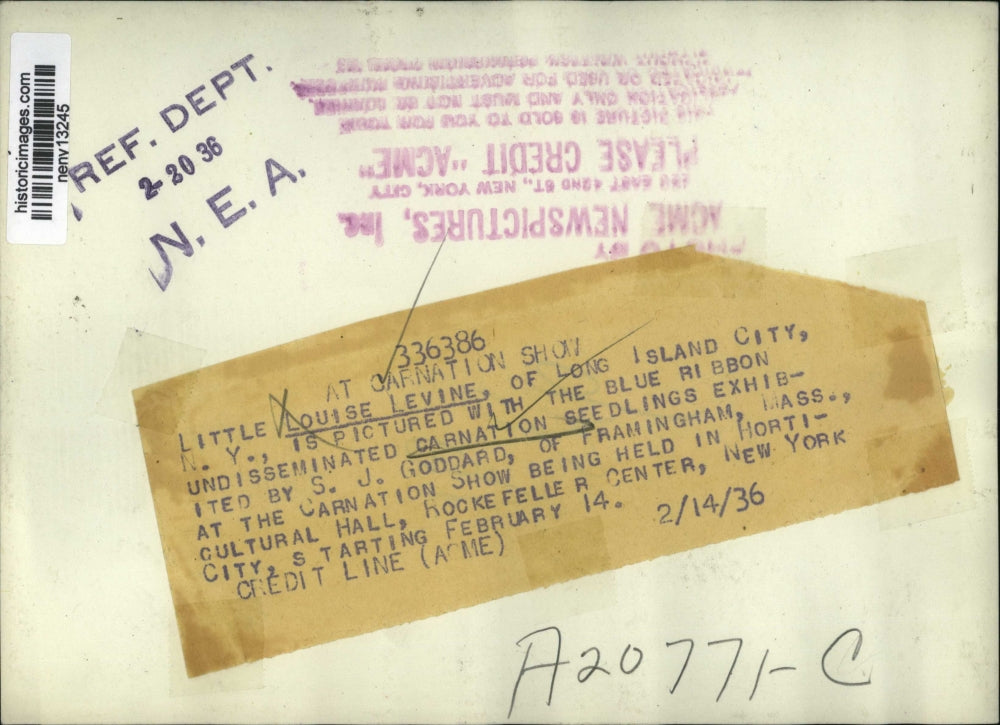 historicimages.com
nenv13245
REF. DEPT.
2-20 36
N. E. A.
BY
ACME NEWSPICTURES, Inc
EAST 42ND ST., NEW YORK, CITY
PLEASE CREDIT "ACME"
PICTURE IS SOLD TO YOU FOR YOUR
ONLY AND MUST NOT BE
OR USED FOR ADVERTISING
336386
AT CARNATION SHOW
LITTLE LOUISE LEVINE, OF LONG ISLAND CITY,
N. Y., IS PICTURED WITH THE BLUE RIBBON
UNDISSEMINATED CARNATION SEEDLINGS EXHIB-
ITED BY S. J. GODDARD, OF FRAMINGHAM, MASS.,
AT THE CARNATION SHOW BEING HELD IN HORTI-
CULTURAL HALL, ROCKEFELLER CENTER, NEW YORK
CITY, STARTING FEBRUARY 14. 2/14/36
CREDIT LINE (ACME)
A20771-C